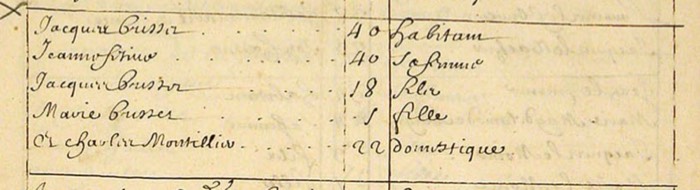 Jacques brisset 40 habitant
Jeanne sa femme
Jacques brisset 18 filz
Marie brisset 1 fille
Et charles Montillier 22 domestique